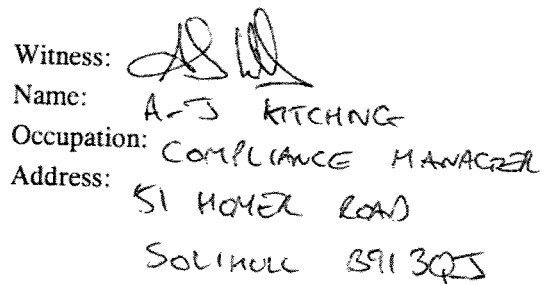 Witness:
Name: A-J KITCHNG
Occupation: COMPLIANCE MANAGER
Address: 51 HOMER ROAD
SOLIHULL B91 3QJ